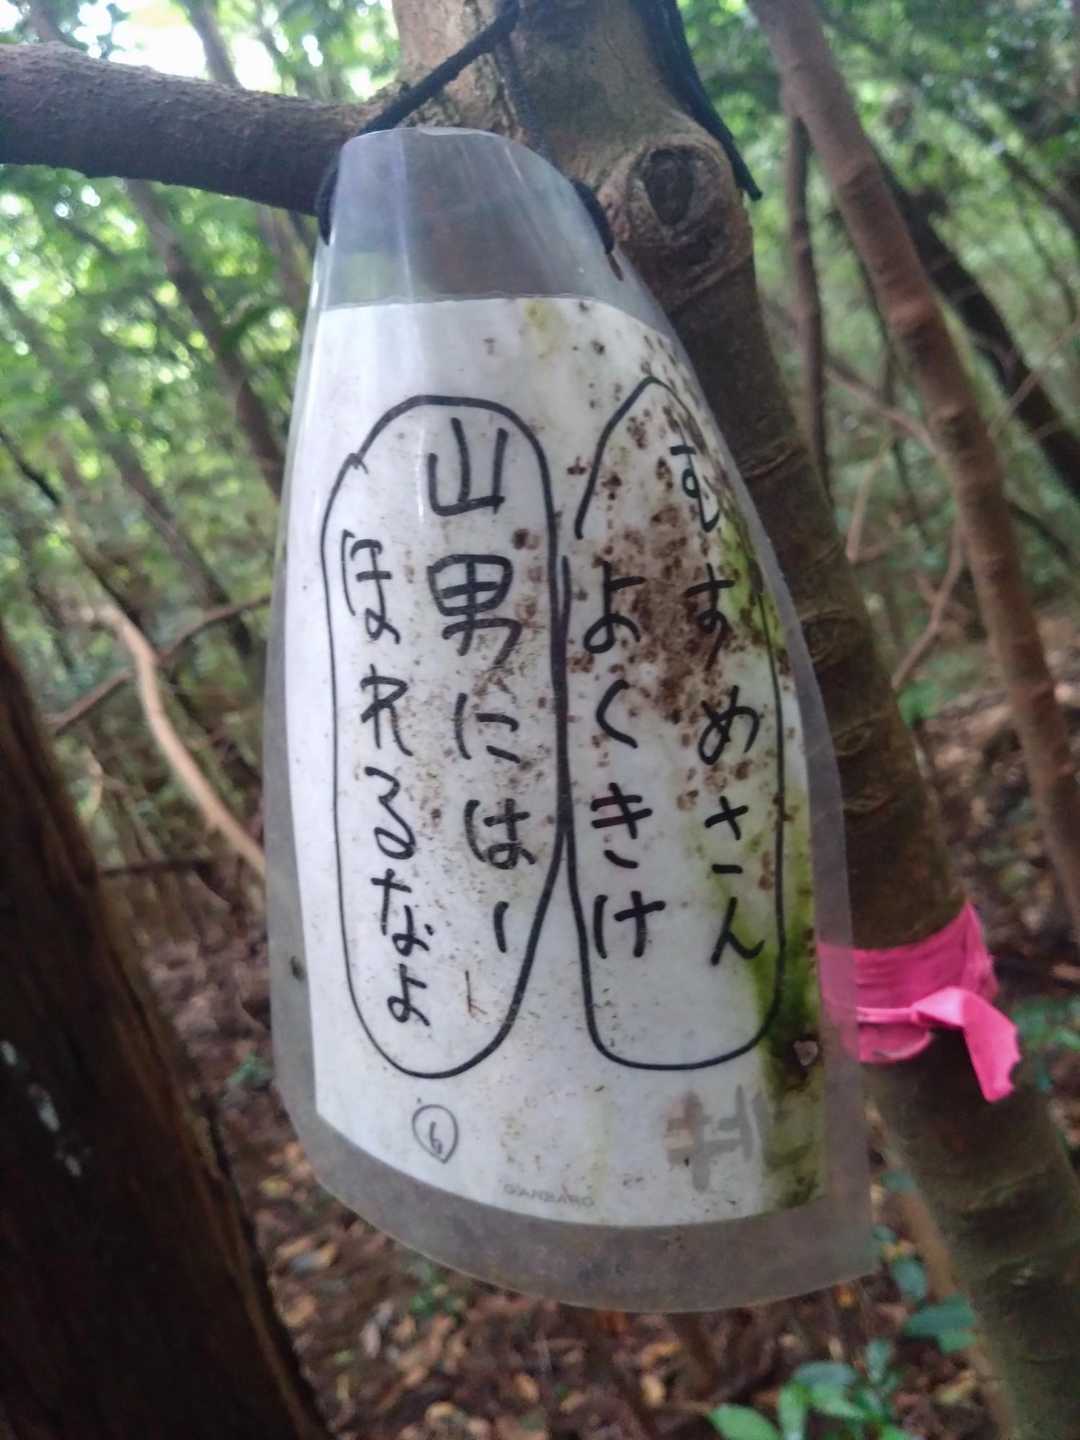 むすめさん
よくきけ
山男にはー
ほれるなよ
6